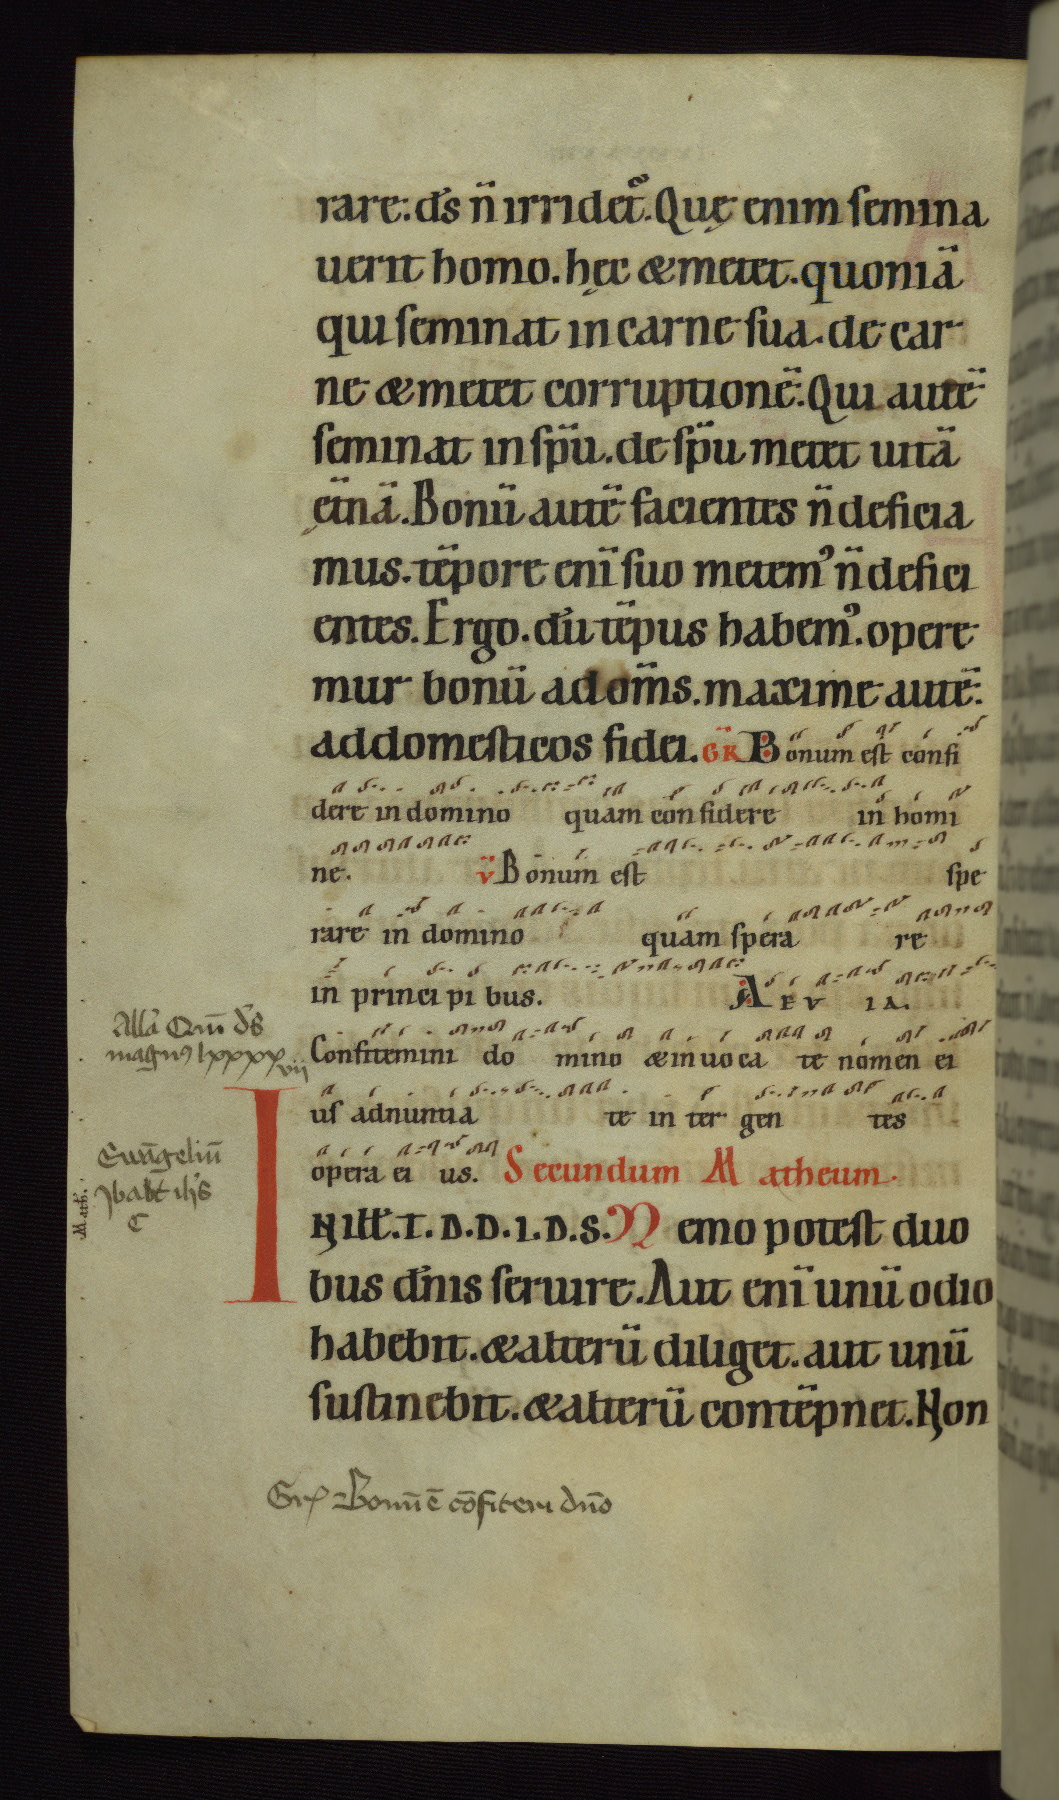 rare: dˉs n̄ irridet᷑. Quę enim semina
uerit homo. hęc & metet. quoniā
qui seminat in carne sua. de car
ne & metet corruptionē. Qui autē
seminat in sp̄u. de sp̄u metet uitā
ęt̄nā. Bonū autē facientes n̄ deficia
mus. tēpore enī suo metemꝰ n̄ defici
entes. Ergo. dū tēpus habemꝰ. opere
mur bonū ad om̄s. maxime autē:
ad domesticos fidei. GR Bonum est confi
dere in domino quam confidere in homi
ne. v Bonum est spe
rare in domino quam spera re
in princi pi bus. AEVIA.
Allā Qm̄ dˉs
magnꝰ lxxxxvii
Confitemini do mino & inuoca te nomen ei
us adnuntia te in ter gen tes
opera ei us. Secundum Matheum.
Ewāgeliū
C
Math.
IN ILL. T. D. D. I. D. S. Nemo potest duo
bus dn̄is seruire. Aut enī unū odio
habebit. & alterū diliget. aut unū
sustinebit. & alterū contēpnet. Non
Gr Bonū ē cōfiteri dn̄o